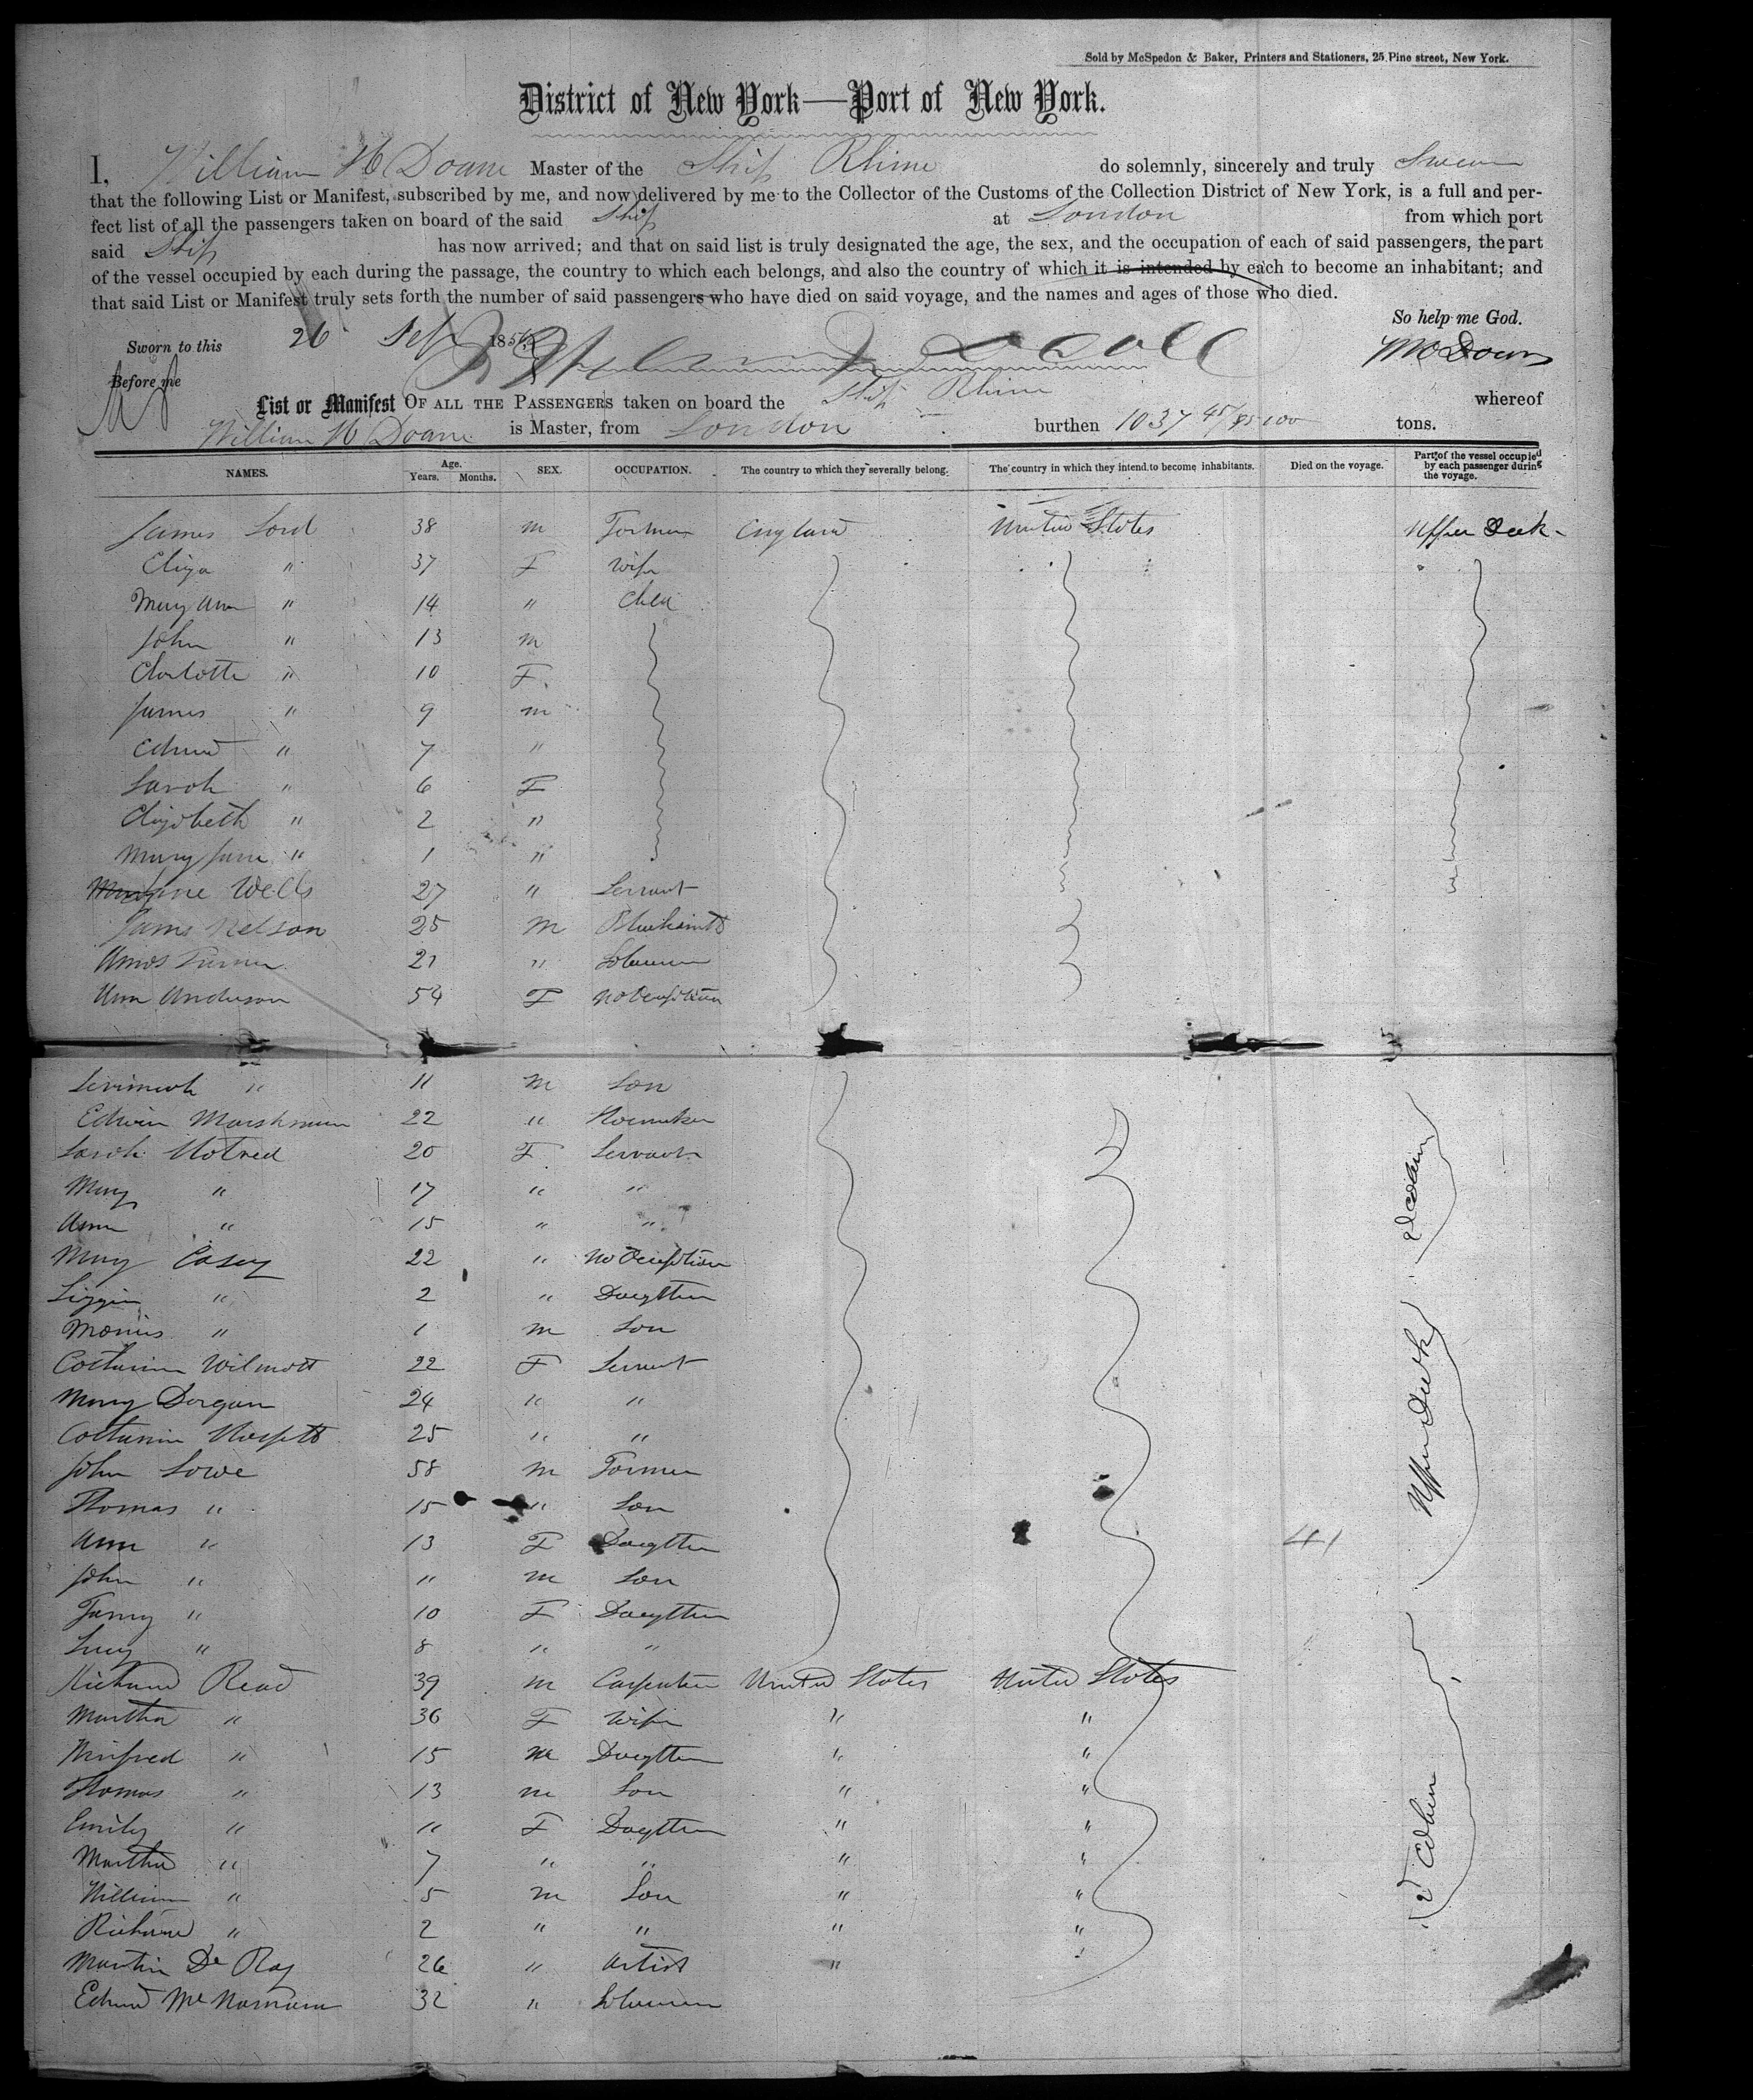 Sold by McSpedon & Baker, Printers and Stationers, 25 Pine street, New York.
District of New York—Port of New York.
I, William H Doane Master of the Ship Rhine do solemnly, sincerely and truly Swear
that the following List or Manifest, subscribed by me, and now delivered by me to the Collector of the Customs of the Collection District of New York, is a full and per-
fect list of all the passengers taken on board of the said Ship at London from which port
said Ship has now arrived; and that on said list is truly designated the age, the sex, and the occupation of each of said passengers, the part
of the vessel occupied by each during the passage, the country to which each belongs, and also the country of which it is intended by each to become an inhabitant; and
that said List or Manifest truly sets forth the number of said passengers who have died on said voyage, and the names and ages of those who died.
So help me God.
Sworn to this 26 Sep 185
Before me
List or Manifest OF ALL THE PASSENGERS taken on board the Ship Rhine whereof
William H Doane is Master, from London burthen 1037 45/95-100 tons.
NAMES. Age. Years. Months. SEX. OCCUPATION. The country to which they severally belong. The country in which they intend to become inhabitants. Died on the voyage. Part of the vessel occupied by each passenger during the voyage.
James Lord 38 m Farmer England United States Upper Deck
Eliza " 37 F Wife
Mary Ann " 14 " Child
John " 13 m
Charlotte " 10 F
James " 9 m
Edward " 7 "
Sarah " 6 F
Elizabeth " 2 "
Mary Jane " 1 "
Jane Wells 27 " Servant
James Nelson 25 m Blacksmith
Amos Turner 21 " Labourer
Ann Anderson 54 F No Occupation
" 11 m Son
Edwin Marshman 22 " Shoemaker
Sarah 20 F Servant
Mary " 17 " "
Ann " 15 " "
Mary Casey 22 " No Occupation
Lizzie " 2 " Daughter
Morris " 1 m Son
Catharine Wilmott 22 F Servant
Mary Dorgan 24 " "
Catharine 25 " "
John Lowe 58 m Farmer
Thomas " 15 " Son
Ann " 13 F Daughter 41
John " 11 m Son
Fanny " 10 F Daughter
Lucy " 8 " "
Richard Read 39 m Carpenter United States United States
Martha " 36 F Wife " "
Winifred " 15 m Daughter " "
Thomas " 13 m Son " "
Emily " 11 F Daughter " "
Martha " 7 " " " "
William " 5 m Son " "
Richard " 2 " " " "
Martin De Ray 26 " Artist "
Edward McNamara 32 " Labourer
2d Cabin
Upper Deck
2d Cabin